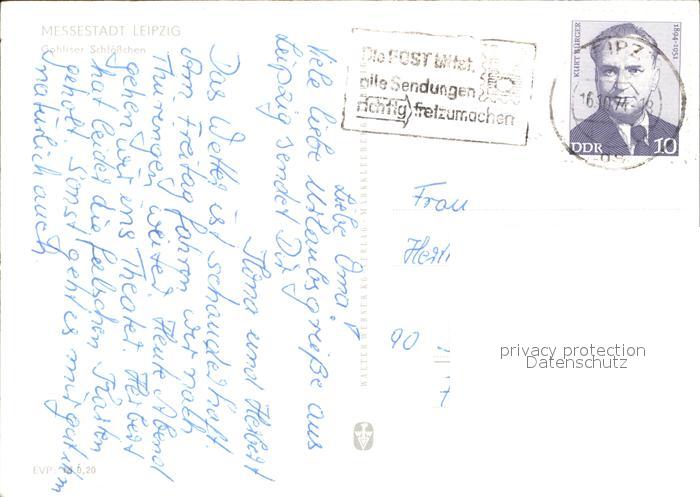 MESSESTADT LEIPZIG
Gohliser Schlößchen
Die POST bittet,
alle Sendungen
richtig freizumachen
KURT BÜRGER
1894-1951
LEIPZIG
16.10.74
DDR 10
Liebe Oma!
Viele liebe Urlaubsgrüße aus
Leipzig sendet Dir
und Herbert
Das Wetter ist schauderhaft.
Am Freitag fahren wir nach
Thüringen weiter. Heute Abend
gehen wir ins Theater. Herbert
hat leider die falschen Karten
geholt. Sonst geht es mir gut, ihm
natürlich auch.
Frau
90
7
WALTER WERNER KUNSTVERLAG MARKKLEEBERG
privacy protection
Datenschutz
EVP: M 0,20